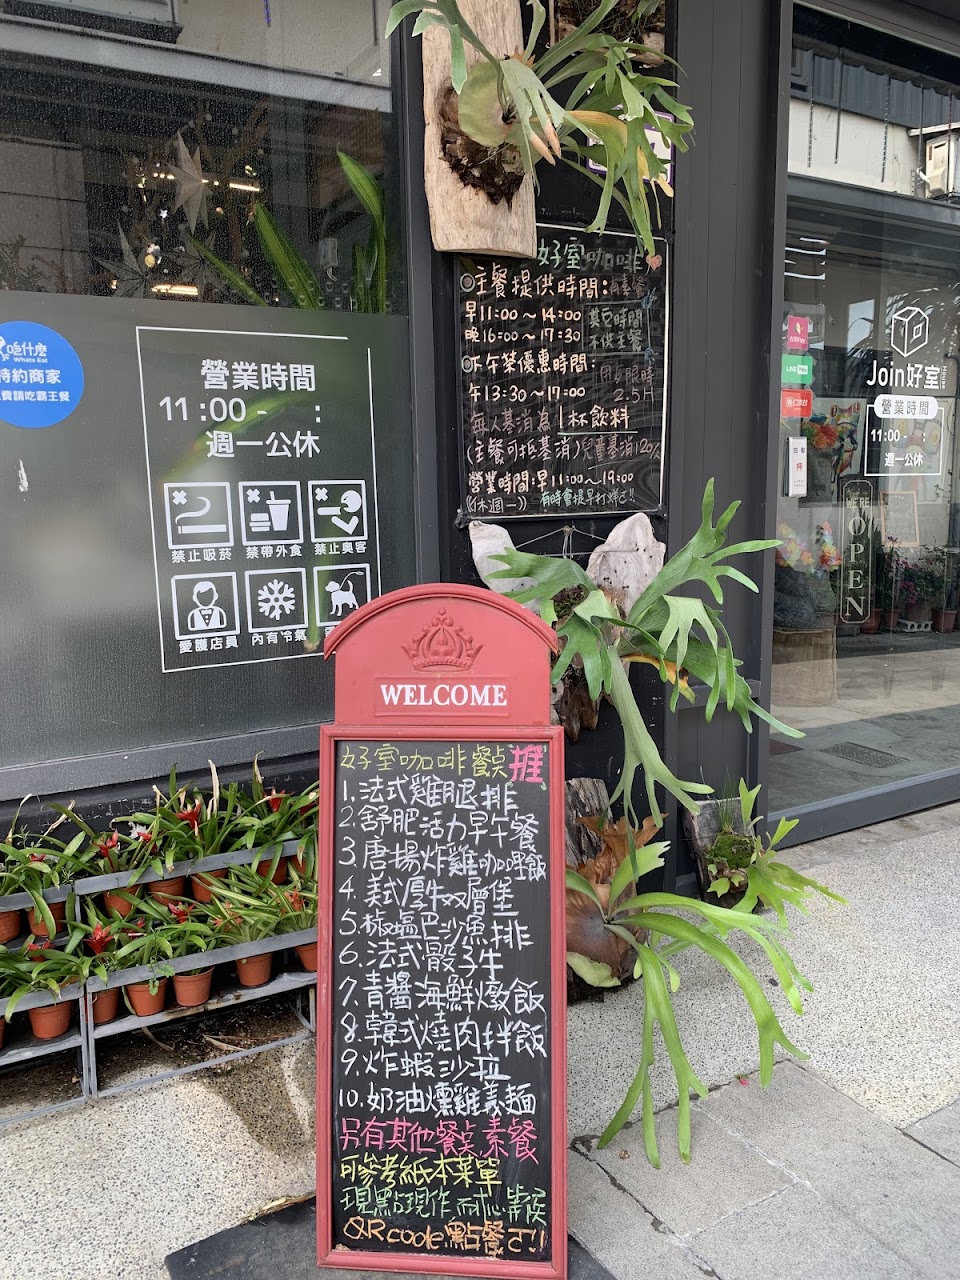 吃什麼
Whats Eat
特約商家
費請吃霸王餐
營業時間
11:00 - :
週一公休
禁止吸菸
禁帶外食
禁止奧客
愛護店員
內有冷氣
好室咖啡
主餐提供時間:有素餐
早11:00～14:00
晚16:00～17:30
其它時間
不供主餐
下午茶優惠時間:
午13:30～17:00
用餐限時
2.5H
每人基消為1杯飲料
(主餐可抵基消)兒童基消120/人
營業時間:早11:00～19:00
((休週一))
有時會提早打烊ㄛ!!
台灣Pay
LINE Pay
街口支付
自動
Join好室
House
營業時間
11:00 -
週一公休
WE'RE
OPEN
WELCOME
好室咖啡餐点推
1.法式雞腿排
2.舒肥活力早午餐
3.唐揚炸雞咖哩飯
4.美式厚牛双層堡
5.椒塩巴沙魚排
6.法式骰子牛
7.青醬海鮮燉飯
8.韓式燒肉拌飯
9.炸蝦沙拉
10.奶油燻雞義麵
另有其他餐点.素餐
可參考紙本菜單
現點現作,耐心等候
QRcode點餐ㄛ!!